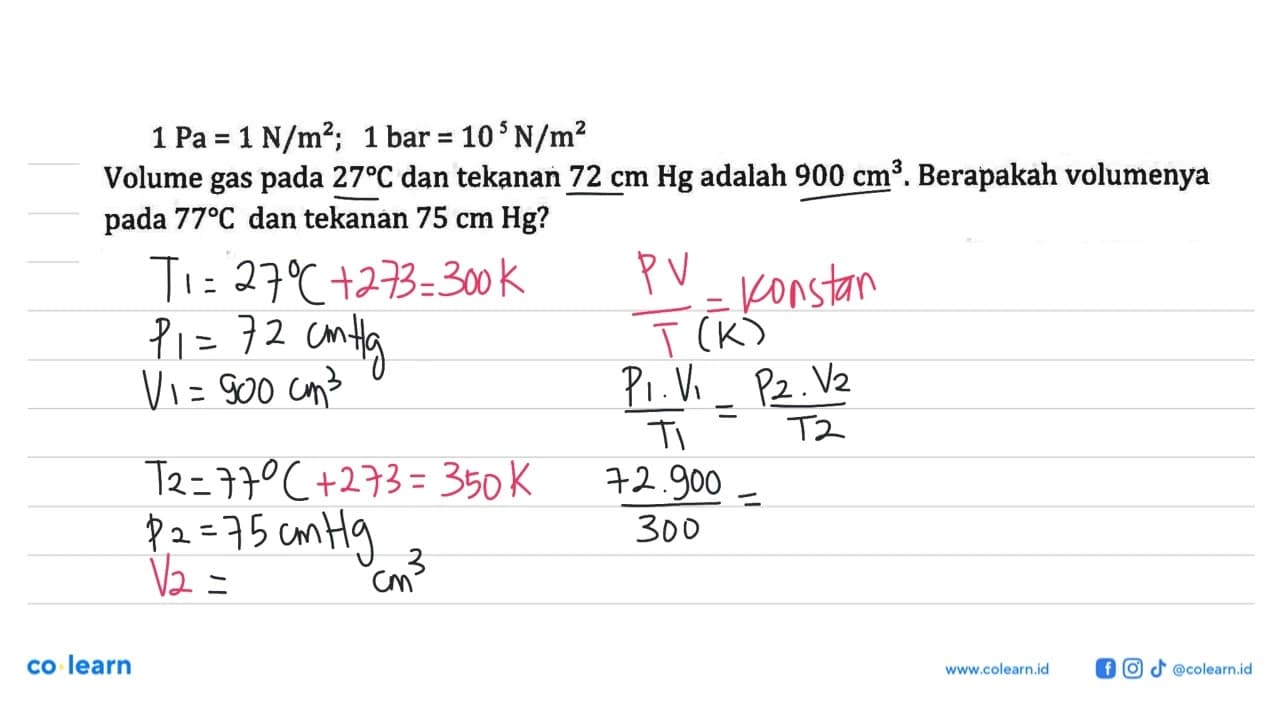 1 Pa = 1 N/m²; 1 bar = 10⁵ N/m²
Volume gas pada 27°C dan tekanan 72 cm Hg adalah 900 cm³. Berapakah volumenya
pada 77°C dan tekanan 75 cm Hg?
T1 = 27°C +273=300K
P1 = 72 cmHg
V1 = 900 cm³
T2=77°C +273= 350K
P2 =75 cmHg
V2 = cm³
PV
= Konstan
T (K)
P1.V1 = P2.V2
T1 T2
72.900 =
300
co learn
www.colearn.id @colearn.id